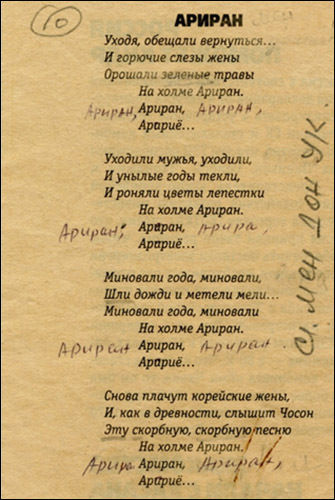 10
АРИРАН
Уходя, обещали вернуться...
И горючие слезы жены
Орошали зеленые травы
На холме Ариран.
Ариран, Ариран, АРИРАН,
Арариё...
Уходили мужья, уходили,
И унылые годы текли,
И роняли цветы лепестки
На холме Ариран.
Ариран, Ариран, Арира,
Арариё...
Миновали года, миновали,
Шли дожди и метели мели...
Миновали года, миновали
На холме Ариран.
Ариран Ариран, Ариран
Арариё...
Снова плачут корейские жены,
И, как в древности, слышит Чосон
Эту скорбную, скорбную песню
На холме Ариран.
Арира Ариран, Ариран,
Арариё...
МЕН ДОН УК